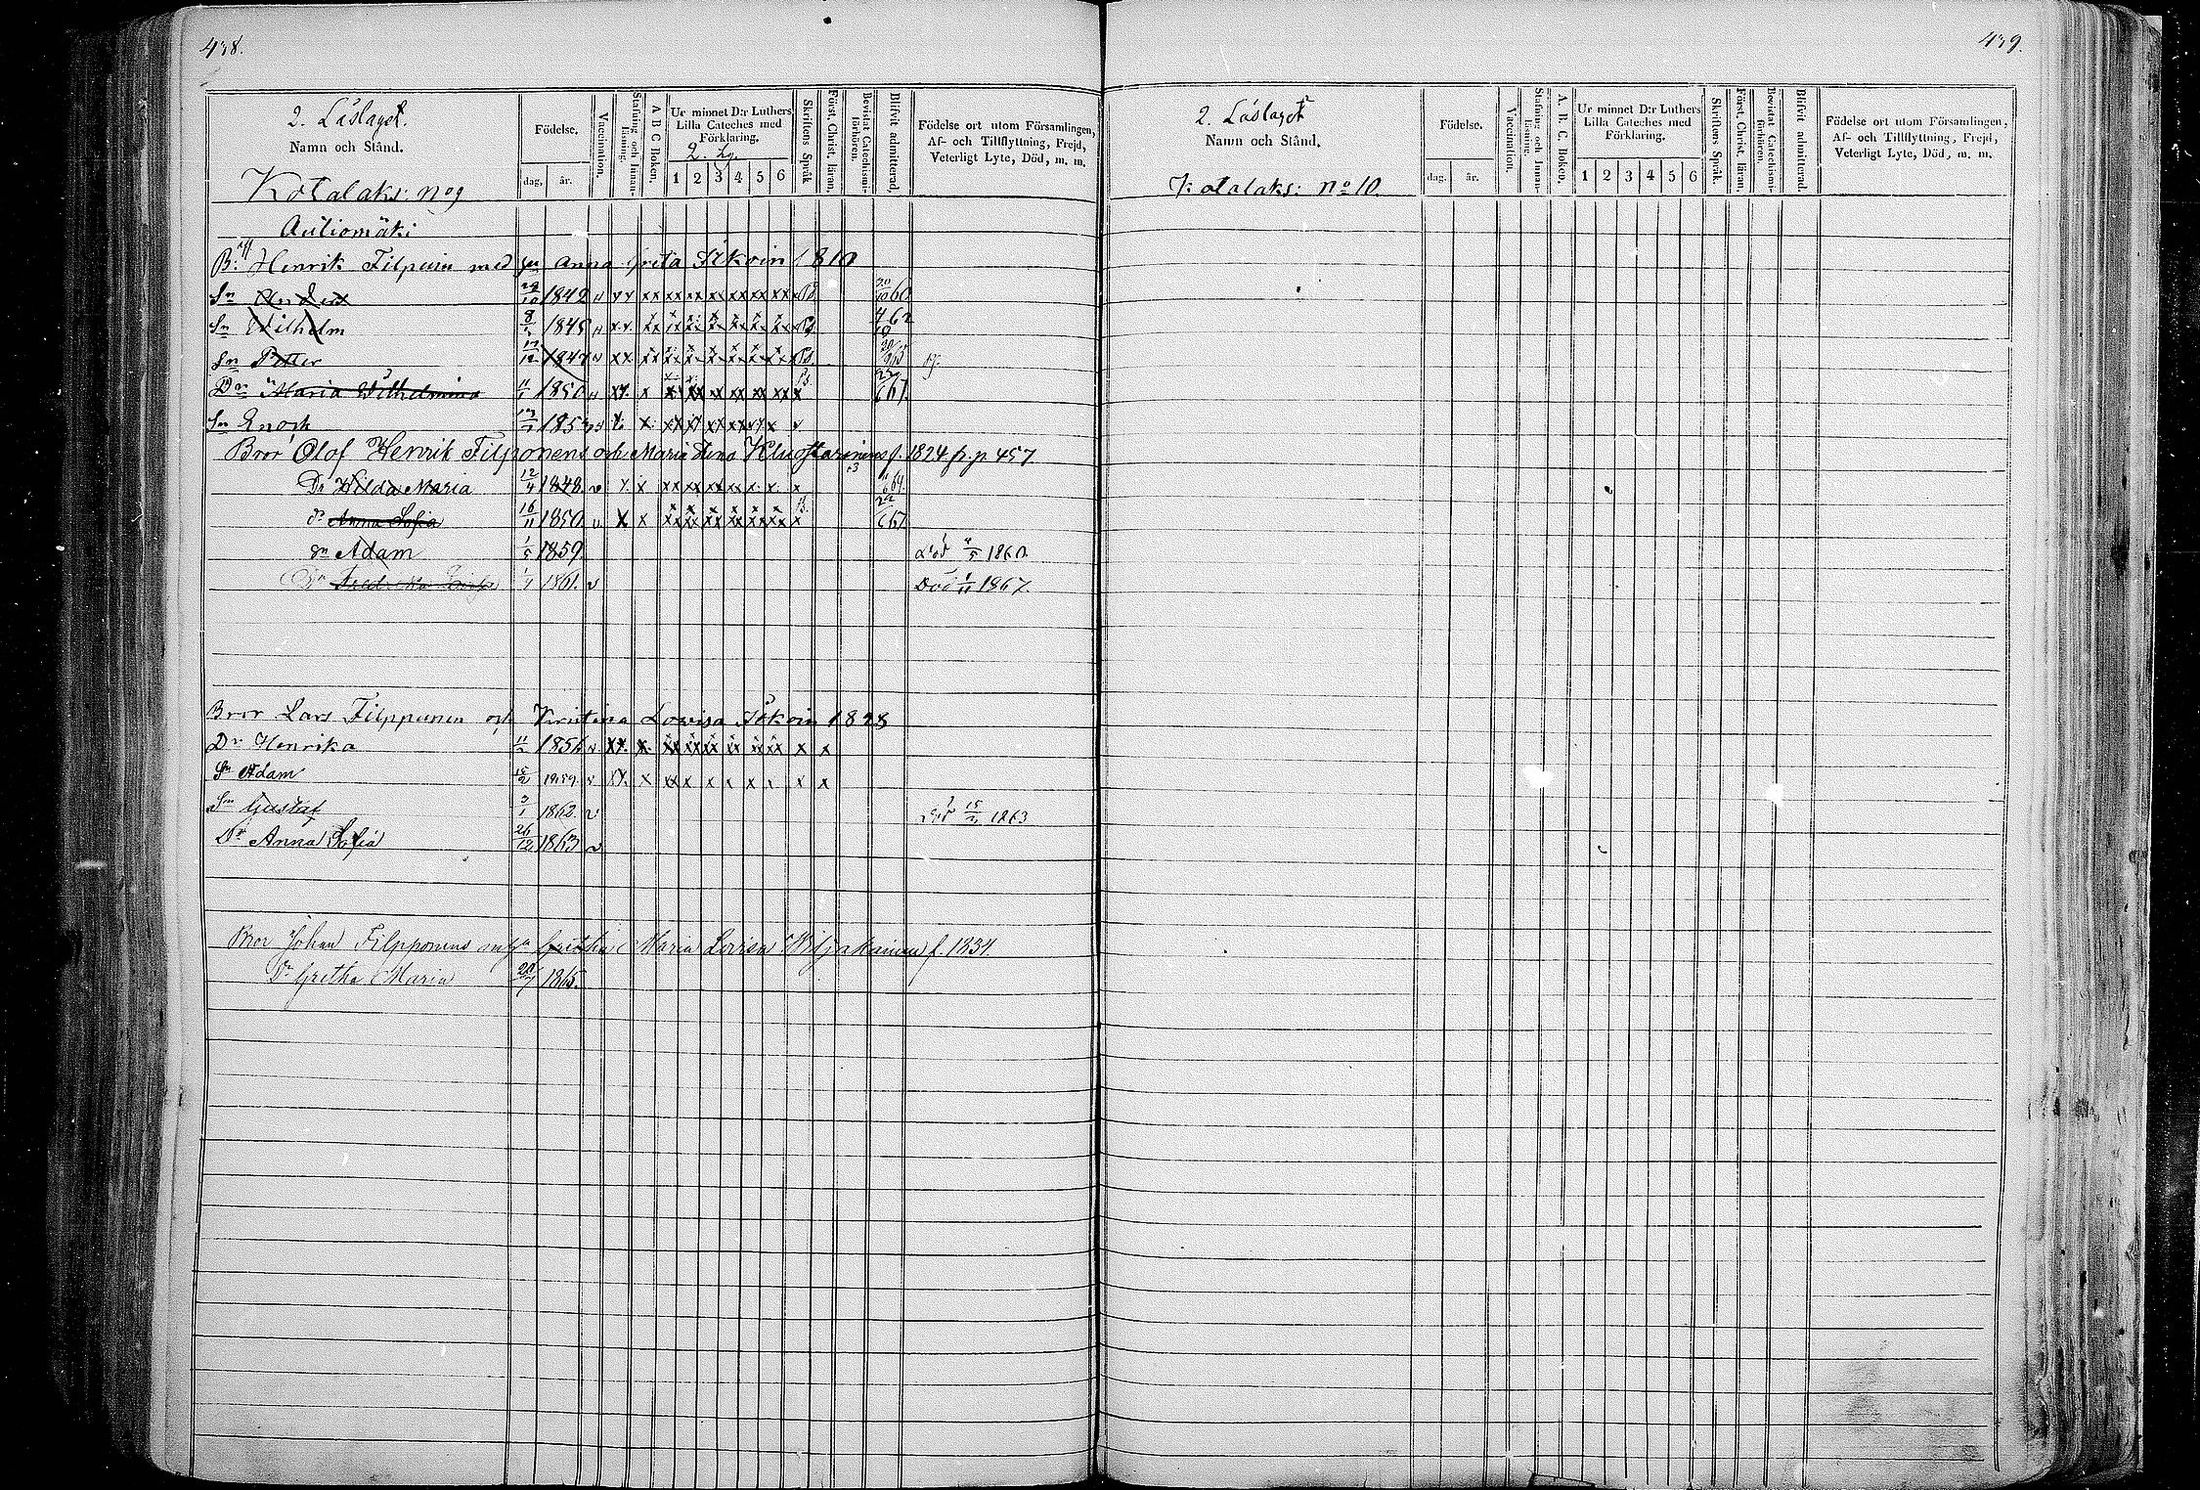 438.
2. Läslaget.
Namn och Stånd.
Födelse.
dag. år.
Vaccination.
Stafning och Innanläsning.
A B C Boken.
Ur minnet D:r Luthers Lilla Cateches med Förklaring.
2. Lg.
1 2 3 4 5 6
Skriftens Språk
Först. Christ. läran.
Bevistat Catechismiförhören.
Blifvit admitterad.
Födelse ort utom Församlingen, Af- och Tillflyttning, Frejd, Veterligt Lyte, Död, m. m.
Kotalaks: No 9
Autiomäki
Henrik Filpuin med Anna Greta 1810
Sn Anders 1842 60
Sn Wilhelm 1845 62
Sn Petter 1847
Dr Maria Wilhelmina 1850 67
Sn Enoch
Bror Olof Henrik Filponens och Maria Stina f. 1824 fr. p 457
Dr Hilda Maria 12/4 1848.
dr Anna Sofia 16/11 1850 67
Sn Adam 1/5 1859 Död 1860.
Dr Fredrika 1861. Död 1867.
Bror Lars Filppunen och Kristina Lovisa 1828
Dr Henrika
Sn Adam 1859.
Sn Gustaf 3/1 1862 1863
Dr Anna Sofia 26/12 1863
Bror Johan Filpponens Gretha Maria Lovisa f. 1834.
Dr Gretha Maria 1865.
439.
2. Läslaget
Namn och Stånd.
Födelse.
dag. år.
Vaccination.
Stafning och Innanläsning.
A. B. C. Boken.
Ur minnet D:r Luthers Lilla Cateches med Förklaring.
1 2 3 4 5 6
Skriftens Språk.
Först. Christ. läran.
Bevistat Catechismiförhören.
Blifvit admitterad.
Födelse ort utom Församlingen, Af- och Tillflyttning, Frejd, Veterligt Lyte, Död, m. m.
Kotalaks: No 10.